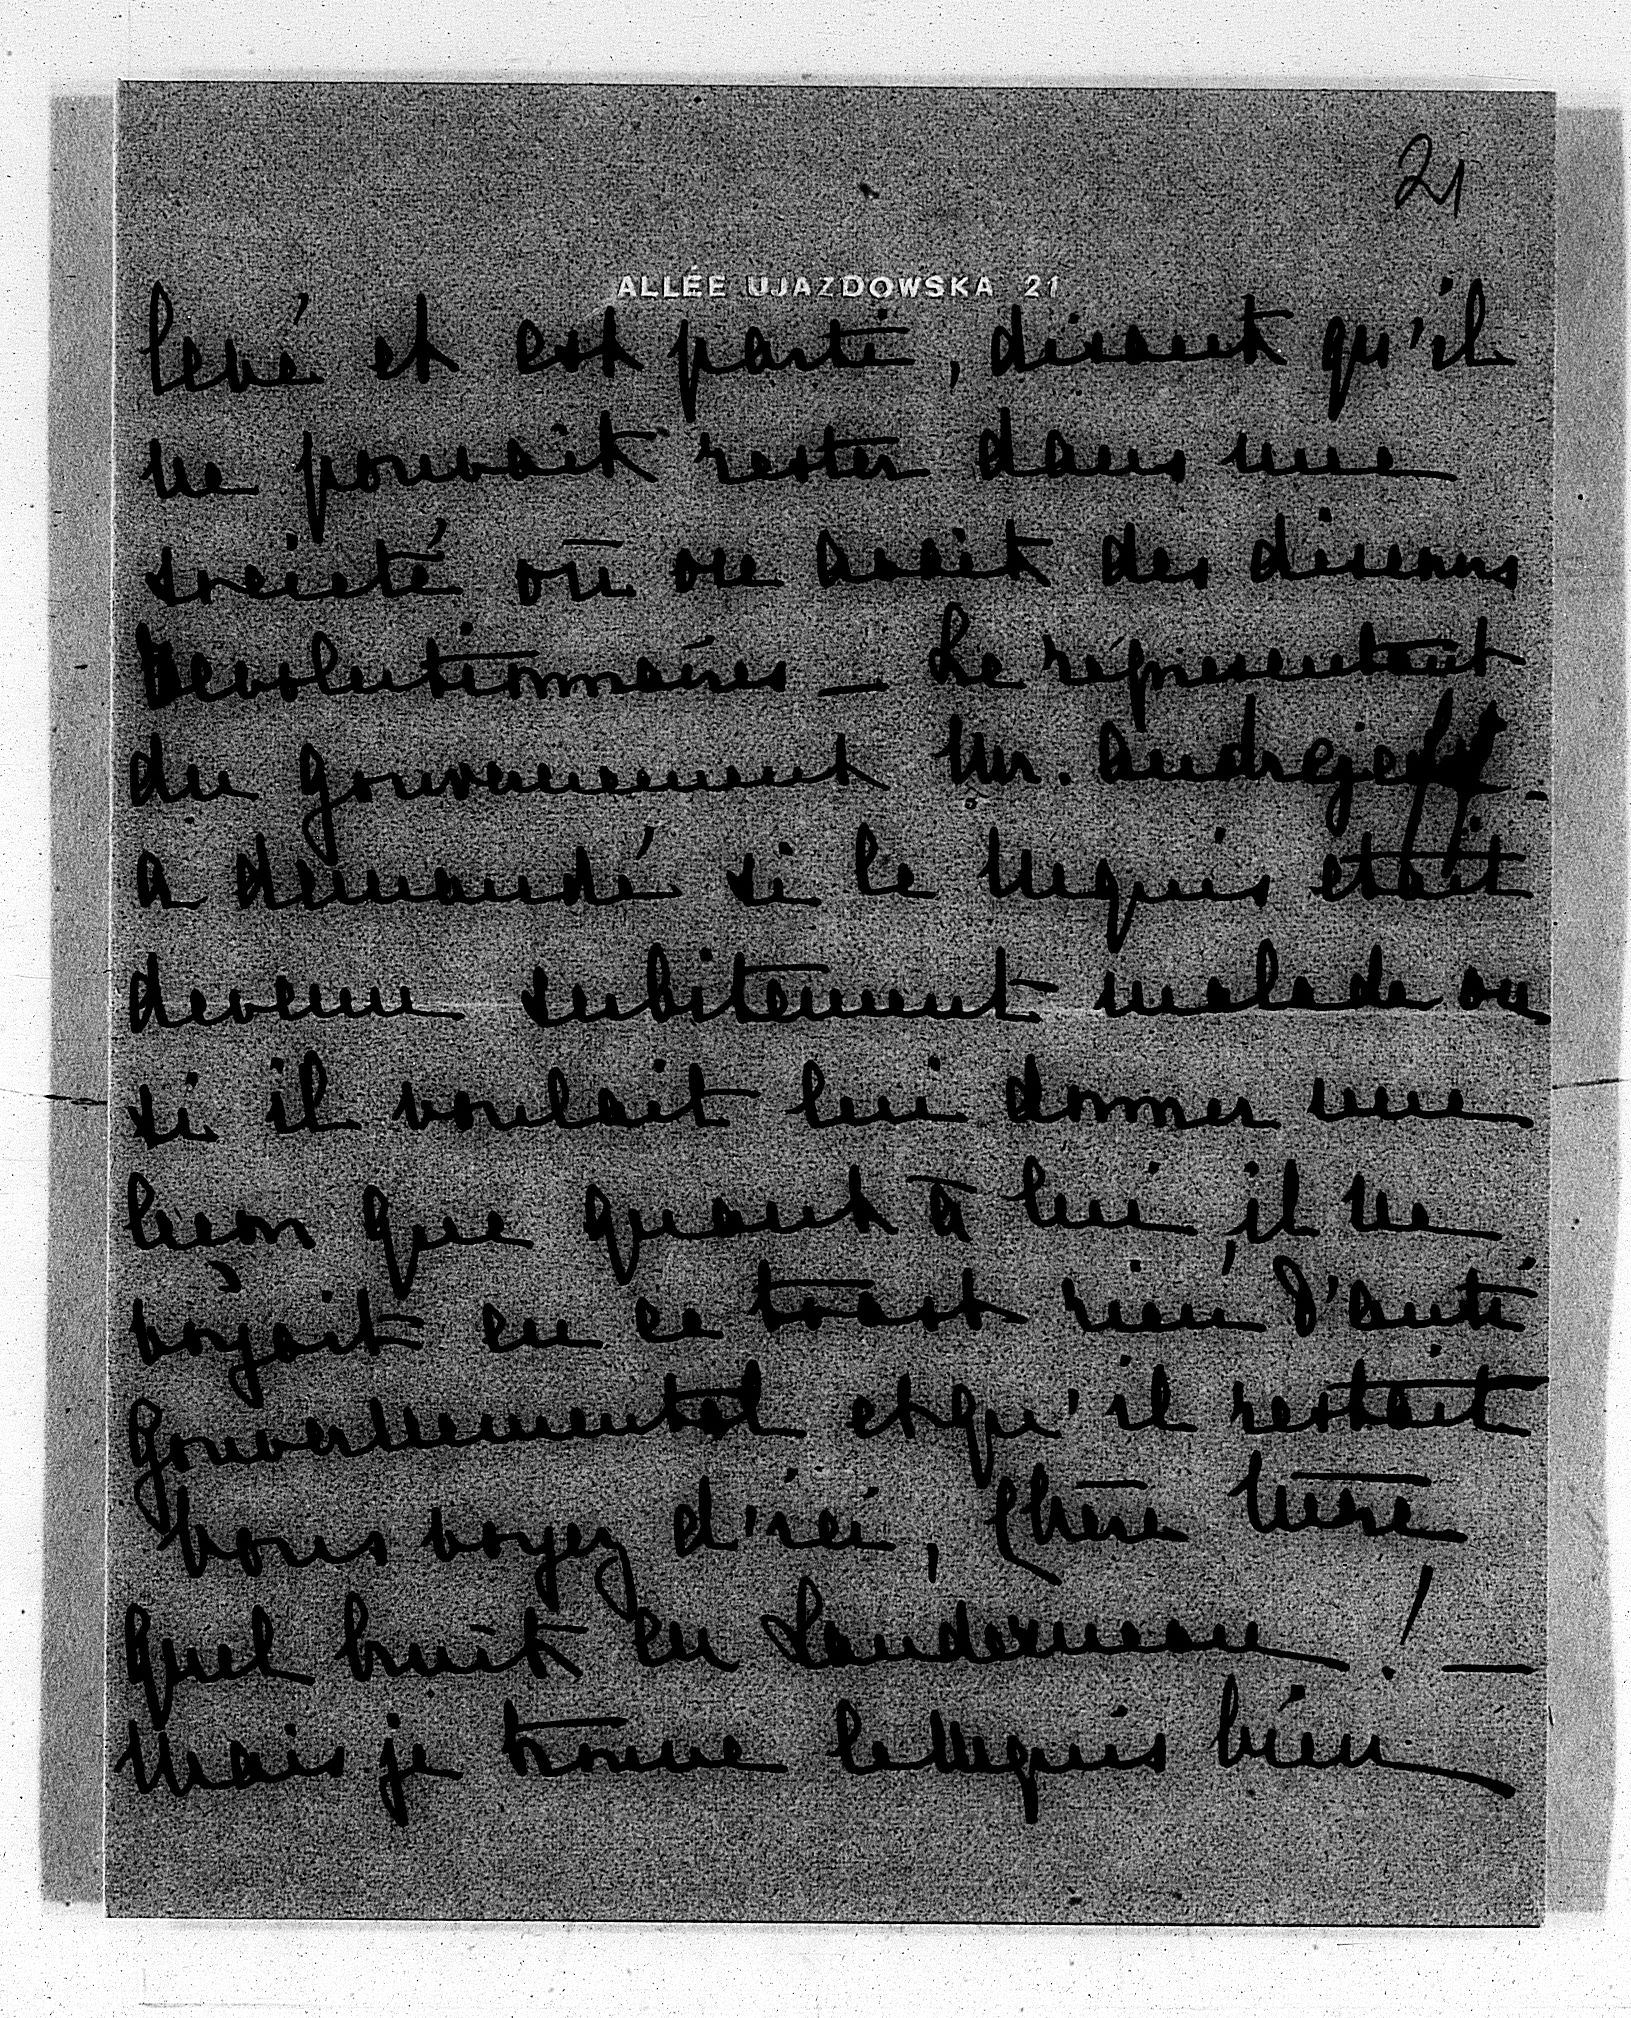 21
ALLÉE UJAZDOWSKA 21
levé et est parti, disant qu'il
ne pouvait rester dans une
société où on avait des discours
revolutionnaires — Le répresentant
du gouvernement Mr. Andrejeff
a demandé si le Mquis etait
devenu subitement malade ou
si il voulait lui donner une
lecon que quant à lui, il ne
voyait en ce toast rien d'anti
gouvernemental et qu'il restait
Vous voyez d'ici, Chère Mère
quel bruit en Landerneau! —
Mais je trouve le Mquis bien